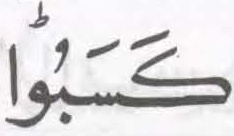 كَسَبُوْا